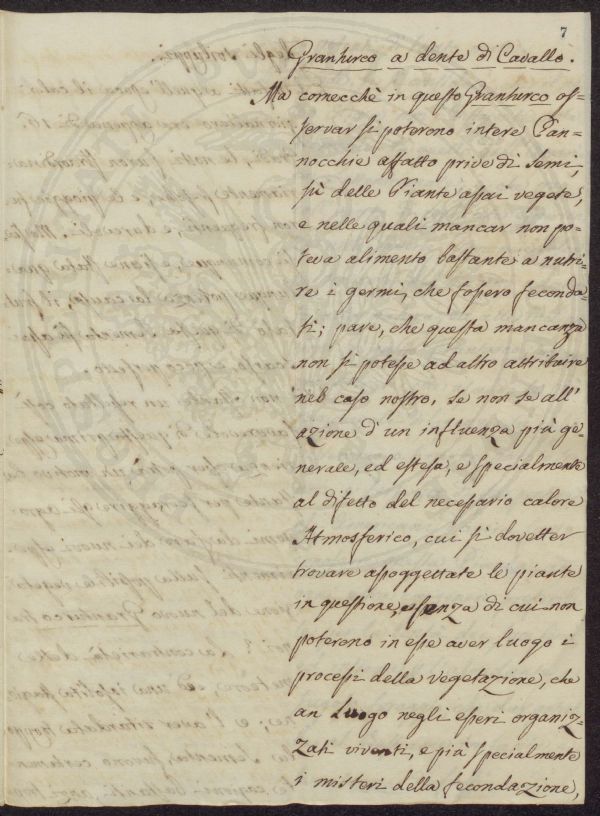 7
Granturco a dente di Cavallo.
Ma comecchè in questo Granturco os=
servar si poterono intere Pan=
nocchie affatto prive di semi,
sù delle Piante assai vegete,
e nelle quali mancar non po=
teva alimento bastante a nutri=
re i germi, che fossero feconda=
ti; pare, che questa mancanza
non si potesse ad altro attribuire
nel caso nostro, se non se all'
azione d'un influenza più ge=
nerale, ed estesa, e specialmente
al difetto del necessario calore
Atmosferico, cui si dovetter
trovare assoggettate le piante
in questione, senza di cui non
poterono in esse aver luogo i
processi della vegetazione, che
an luogo negli esseri organiz=
zati viventi, e più specialmente
i misteri della fecondazione,